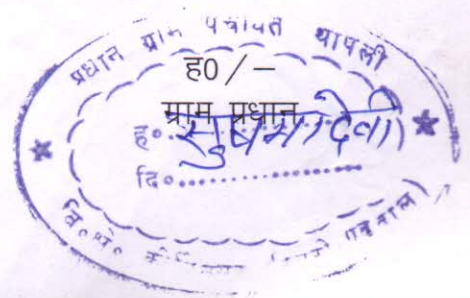 प्रधान ग्राम पंचायत थापली
ह0 / –
ग्राम प्रधान
ह०..सुषमा देवी)
दि०..................
वि०क्षे०
गढ़वाल)